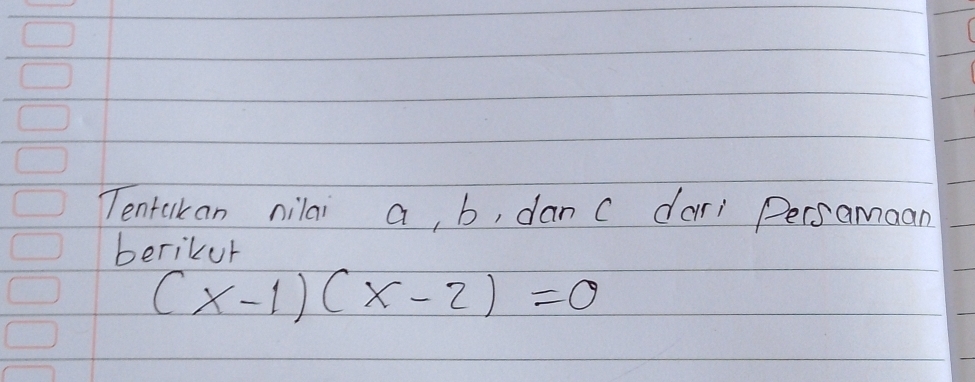 Tentukan nilai a, b, dan c dari Persamaan
berikut
(x-1)(x-2) =0